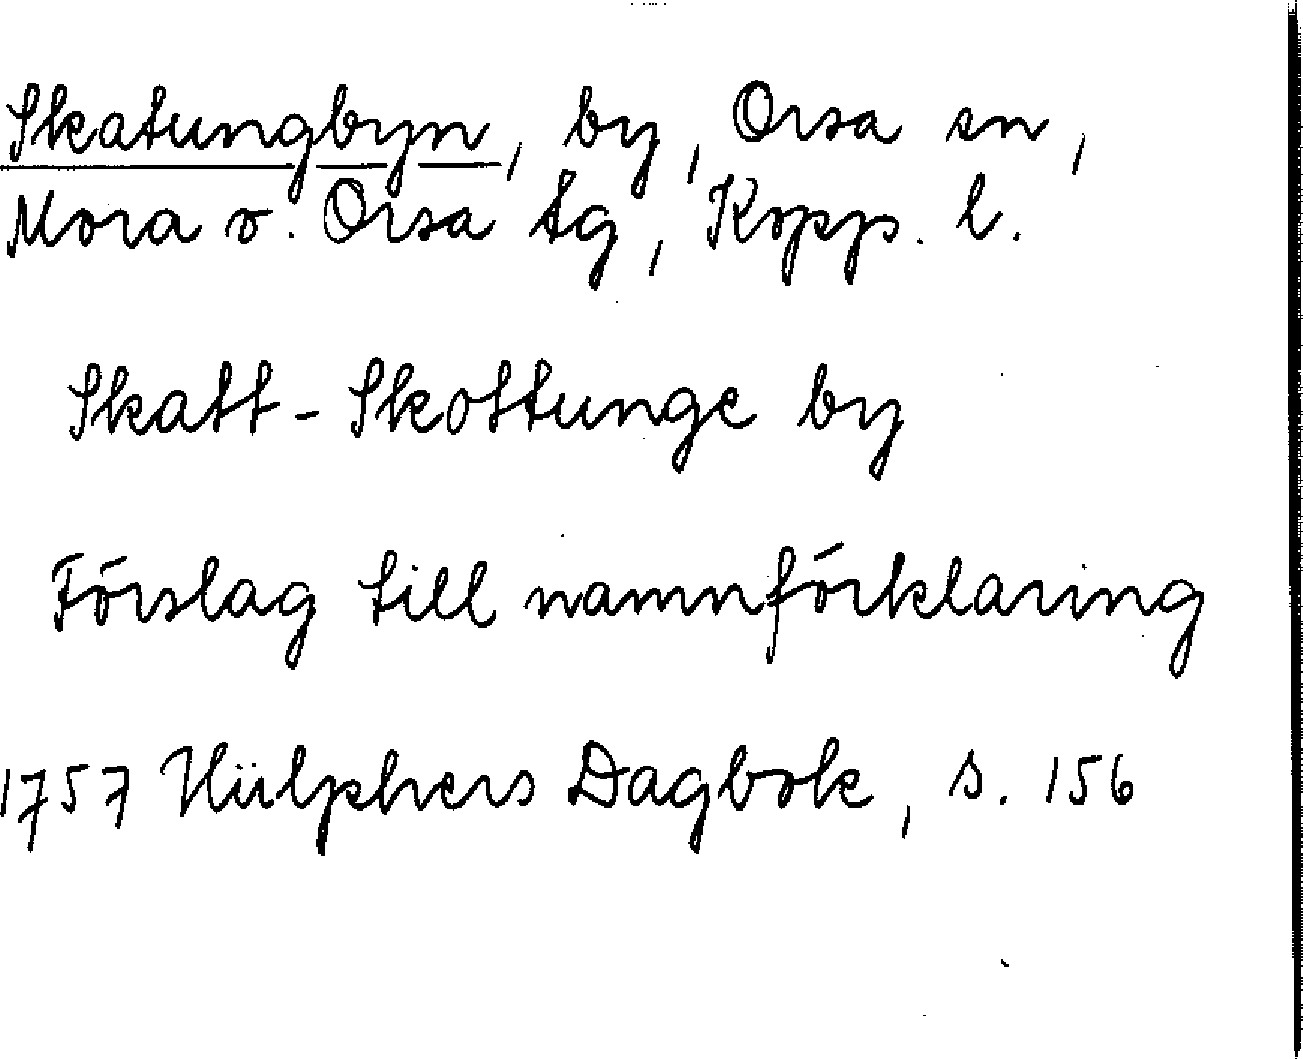 Skatungbyn, by, Orsa sn,
Mora o. Orsa tg, Kopp. l.
Skatt-Skottunge by
Förslag till namnförklaring
1757 Hülphers Dagbok, s. 156